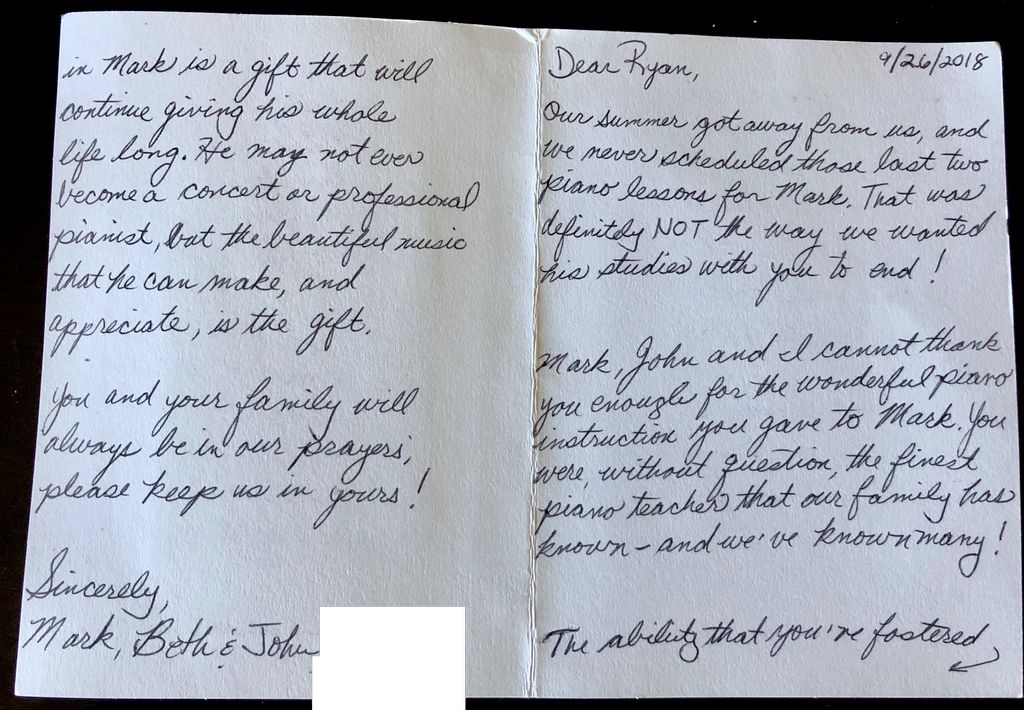 9/26/2018
Dear Ryan,
Our summer got away from us, and
we never scheduled those last two
piano lessons for Mark. That was
definitely NOT the way we wanted
his studies with you to end!
Mark, John and I cannot thank
you enough for the wonderful piano
instruction you gave to Mark. You
were, without question, the finest
piano teacher that our family has
known - and we've known many!
The ability that you've fostered
in Mark is a gift that will
continue giving his whole
life long. He may not ever
become a concert or professional
pianist, but the beautiful music
that he can make, and
appreciate, is the gift.
You and your family will
always be in our prayers;
please keep us in yours!
Sincerely,
Mark, Beth & John